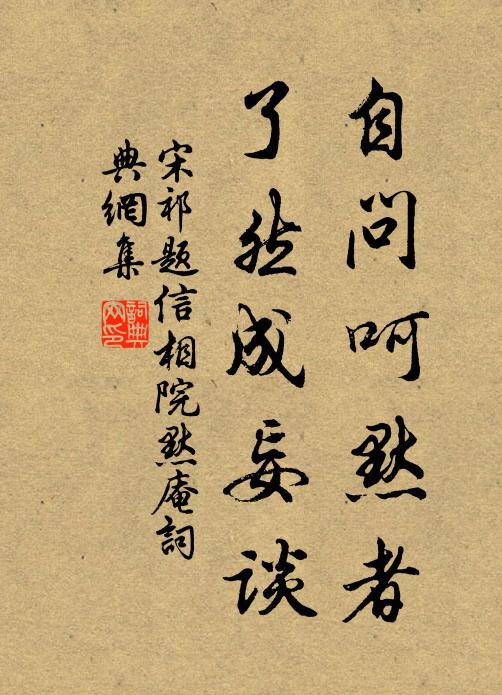 自问呵默者
了然成妄谈
宋祁题信相院默庵詞
典網集
詞典
网印